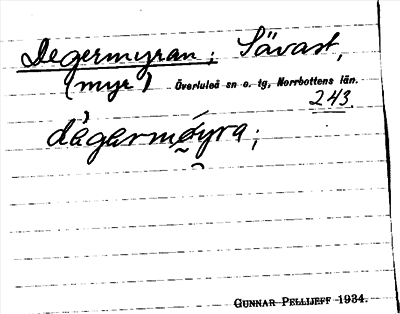 Degermyran; Sävast,
(myr) Överluleå sn o. tg, Norrbottens län.
243.
dègermǿ̰yra;
GUNNAR PELLIJEFF 1934.